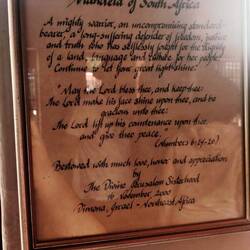 of South Africa
A mighty warrior, an uncompromising standard
bearer, a long-suffering defender of freedom, justice
and truth who has selflessly fought for the dignity
of a land, language and culture for her people!
Continue to let your great light shine!
"May the Lord bless thee, and keep thee:
The Lord make his face shine upon thee, and be
gracious unto thee:
The Lord lift up his countenance upon thee,
and give thee peace."
(Numbers 6:24-26)
Bestowed with much love, honor and appreciation
by
The Divine Jerusalem Sisterhood
16 November, 2000
Dimona, Israel - Northeast Africa